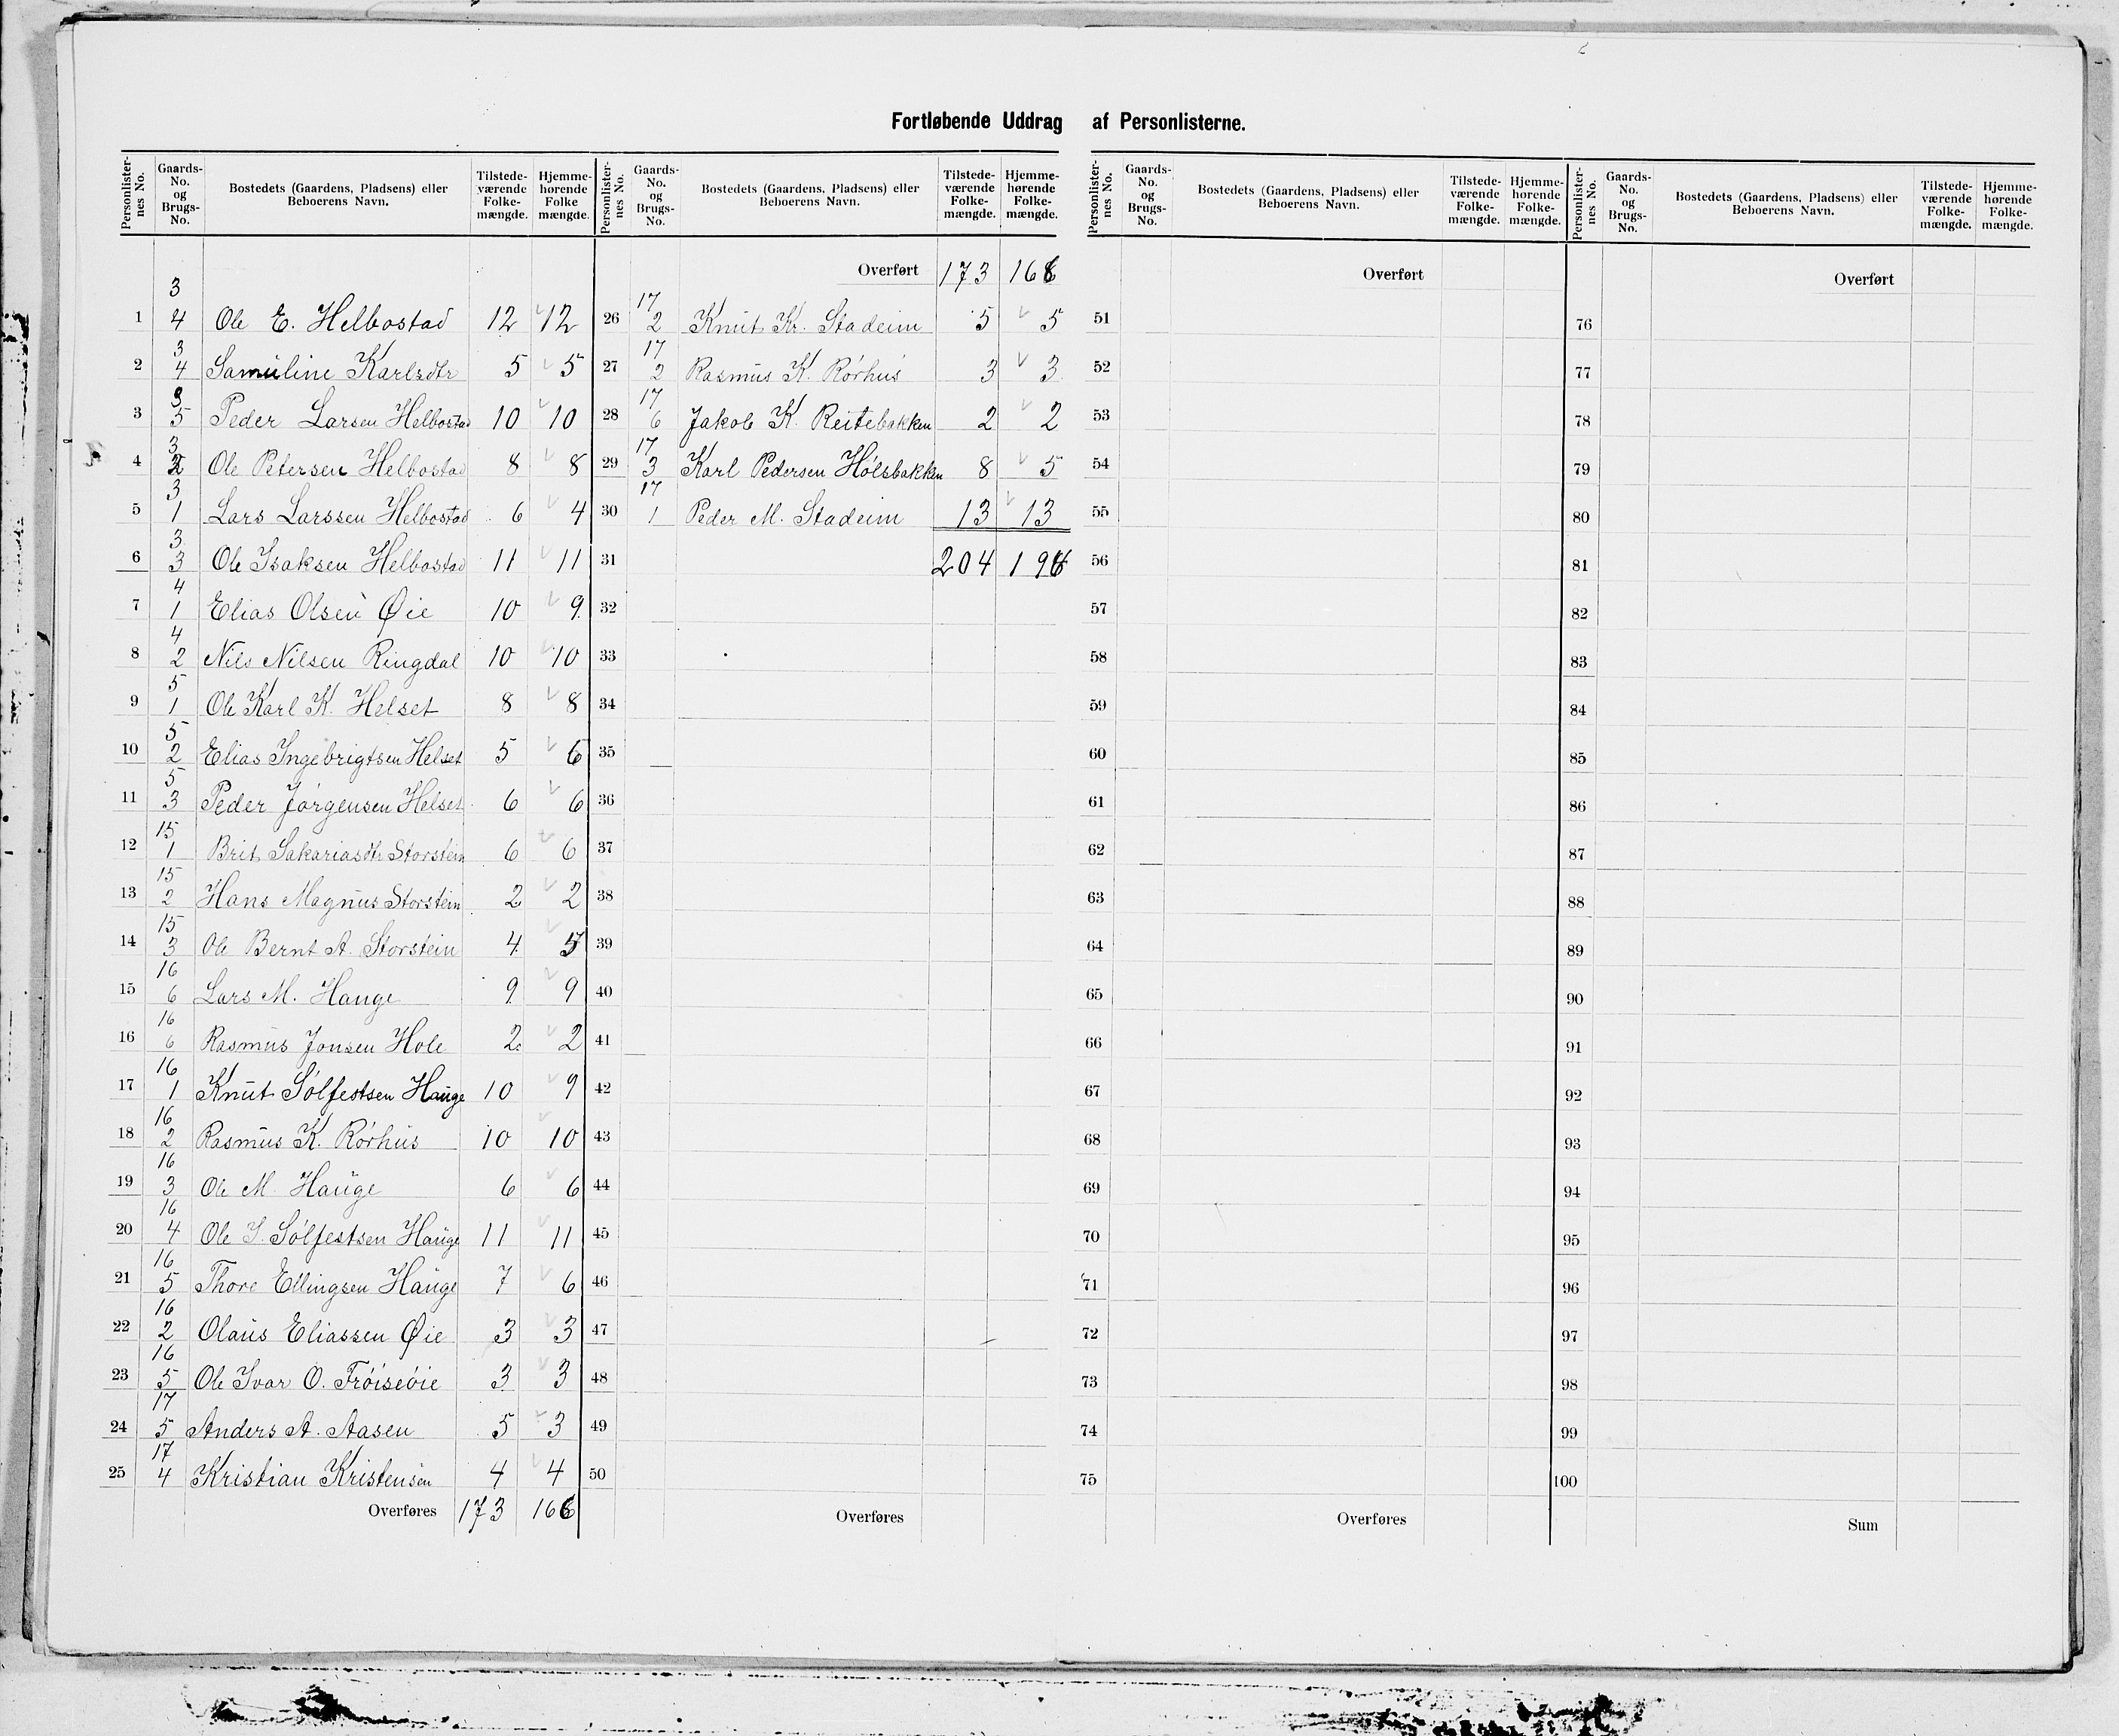 Fortløbende Uddrag af Personlisterne.
Personlisternes No. | Gaards-No. og Brugs-No. | Bostedets (Gaardens, Pladsens) eller Beboerens Navn. | Tilstedeværende Folkemængde. | Hjemmehørende Folkemængde.
1 | 3 4 | Ole E. Helbostad | 12 | 12
2 | 3 4 | Samuline Karlsdtr | 5 | 5
3 | 3 5 | Peder Larsen Helbostad | 10 | 10
4 | 3 2 | Ole Petersen Helbostad | 8 | 8
5 | 3 1 | Lars Larssen Helbostad | 6 | 4
6 | 3 3 | Ole Isaksen Helbostad | 11 | 11
7 | 4 1 | Elias Olsen Øie | 10 | 9
8 | 4 2 | Nils Nilsen Ringdal | 10 | 10
9 | 5 1 | Ole Karl K. Helset | 8 | 8
10 | 5 2 | Elias Ingebrigtsen Helset | 5 | 6
11 | 5 3 | Peder Jørgensen Helset | 6 | 6
12 | 15 1 | Brit Sakariasdtr Storstein | 6 | 6
13 | 15 2 | Hans Magnus Storstein | 2 | 2
14 | 15 3 | Ole Bernt A. Storstein | 4 | 5
15 | 16 6 | Lars M. Hauge | 9 | 9
16 | 16 6 | Rasmus Jonsen Hole | 2 | 2
17 | 16 1 | Knut Sølfestsen Hauge | 10 | 9
18 | 16 2 | Rasmus K. Rørhus | 10 | 10
19 | 16 3 | Ole M. Hauge | 6 | 6
20 | 16 4 | Ole I. Sølfestsen Hauge | 11 | 11
21 | 16 5 | Thore Ellingsen Hauge | 7 | 6
22 | 16 2 | Olaus Eliassen Øie | 3 | 3
23 | 16 5 | Ole Ivar O. Frøisøie | 3 | 3
24 | 17 5 | Anders A. Aasen | 5 | 3
25 | 17 4 | Kristian Kristensen | 4 | 4
Overføres | 173 | 166
Personlisternes No. | Gaards-No. og Brugs-No. | Bostedets (Gaardens, Pladsens) eller Beboerens Navn. | Tilstedeværende Folkemængde. | Hjemmehørende Folkemængde.
Overført | 173 | 168
26 | 17 2 | Knut Kr. Stadeim | 5 | 5
27 | 17 2 | Rasmus K. Rørhus | 3 | 3
28 | 17 6 | Jakob K. Reitebakken | 2 | 2
29 | 17 3 | Karl Pedersen Hølsbakken | 8 | 5
30 | 17 1 | Peder M. Stadeim | 13 | 13
31 | 204 | 196
32
33
34
35
36
37
38
39
40
41
42
43
44
45
46
47
48
49
50
Overføres
Personlisternes No. | Gaards-No. og Brugs-No. | Bostedets (Gaardens, Pladsens) eller Beboerens Navn. | Tilstedeværende Folkemængde. | Hjemmehørende Folkemængde.
Overført
51
52
53
54
55
56
57
58
59
60
61
62
63
64
65
66
67
68
69
70
71
72
73
74
75
Overføres
Personlisternes No. | Gaards-No. og Brugs-No. | Bostedets (Gaardens, Pladsens) eller Beboerens Navn. | Tilstedeværende Folkemængde. | Hjemmehørende Folkemængde.
Overført
76
77
78
79
80
81
82
83
84
85
86
87
88
89
90
91
92
93
94
95
96
97
98
99
100
Sum